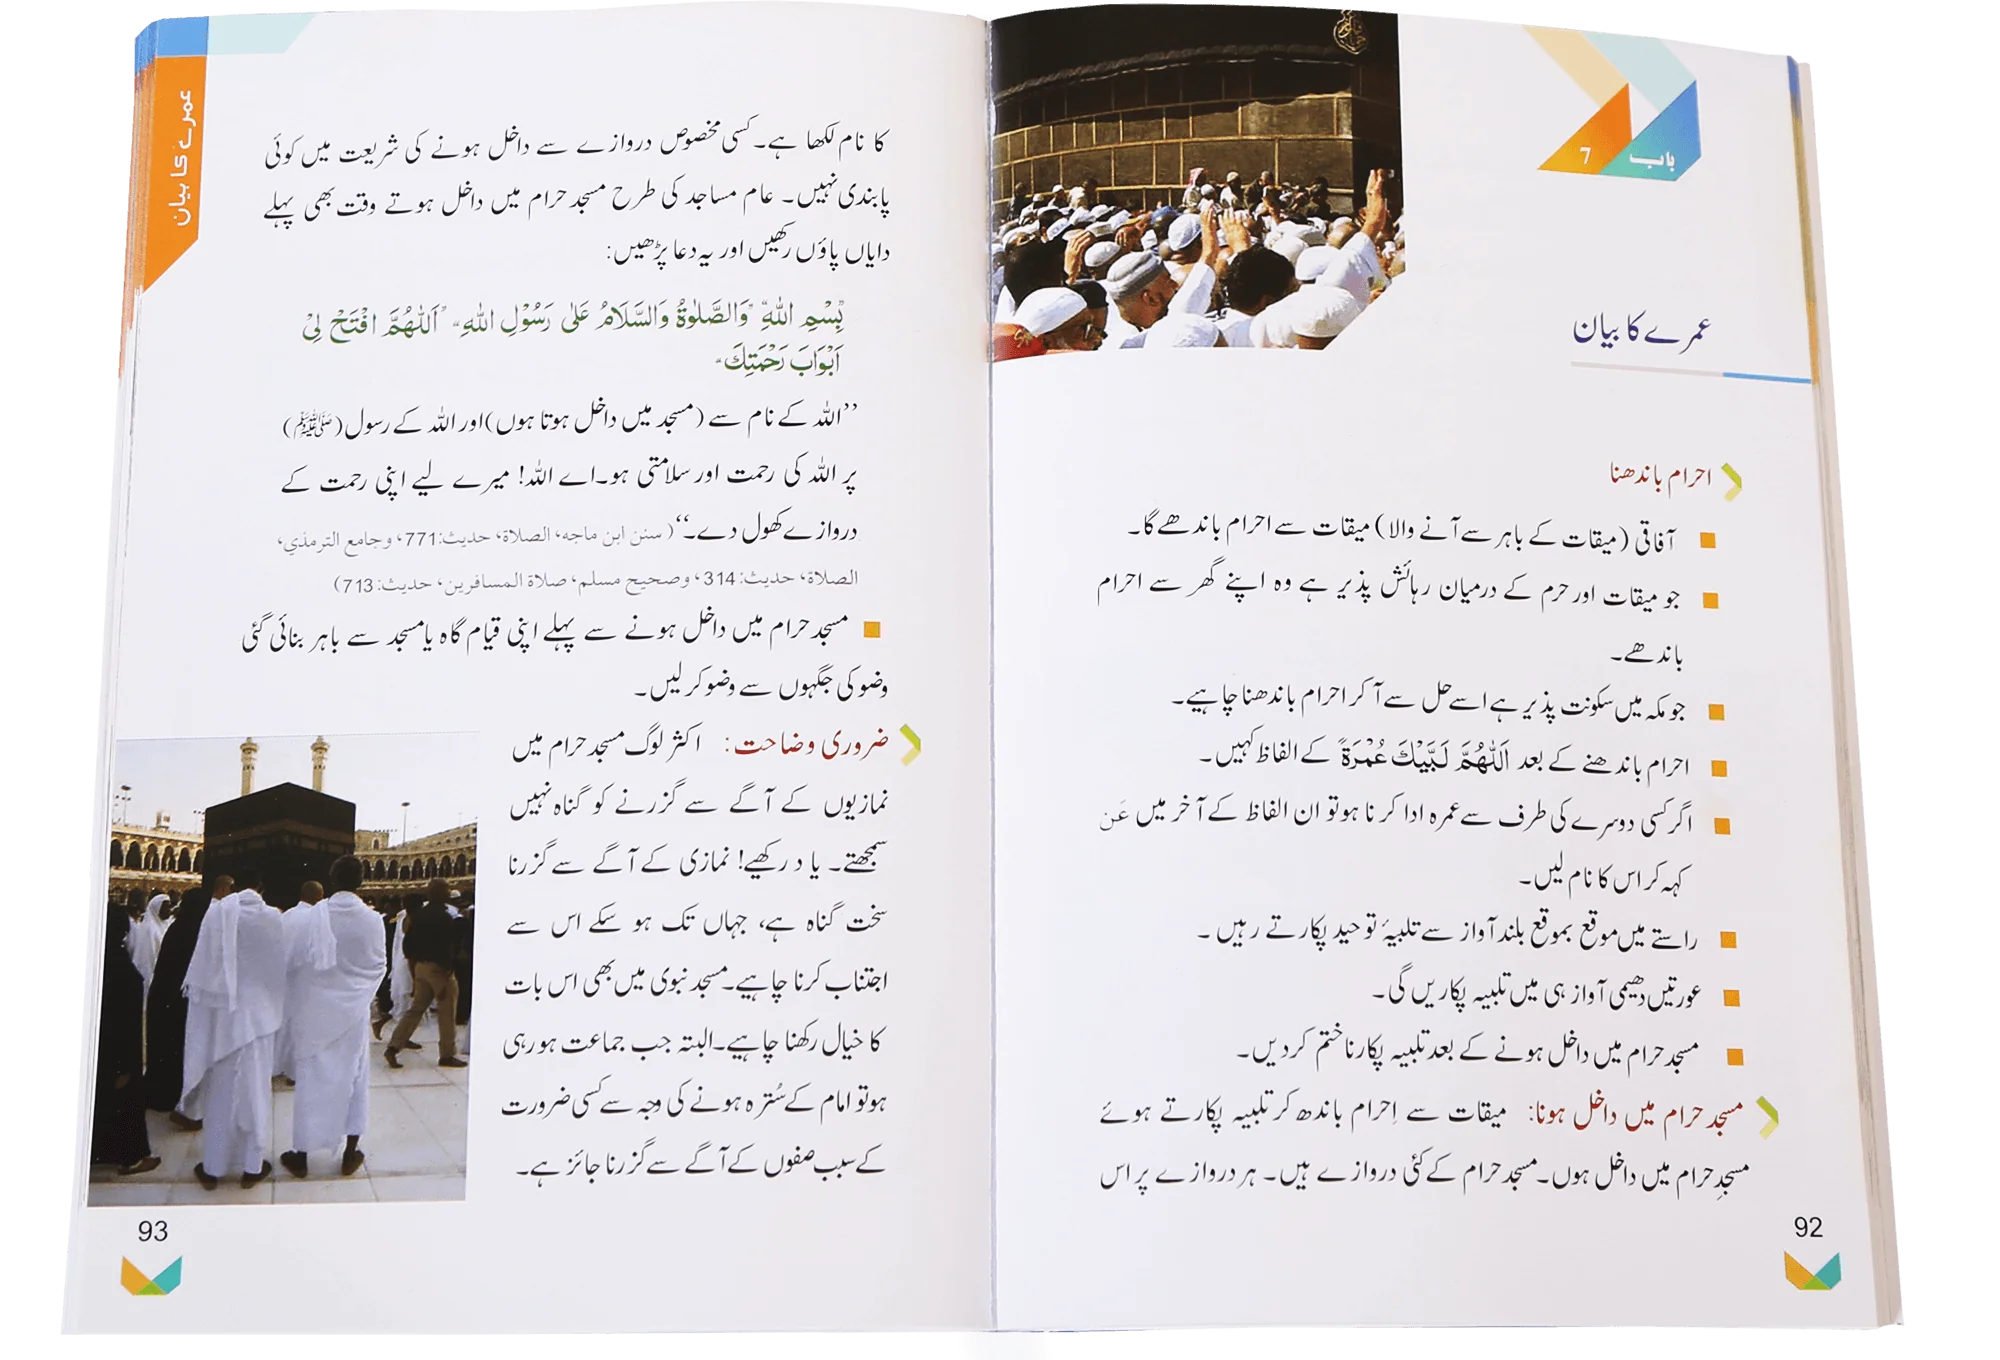 باب 7
عمرے کا بیان
احرام باندھنا
آفاقی (میقات کے باہر سے آنے والا) میقات سے احرام باندھے گا۔
جو میقات اور حرم کے درمیان رہائش پذیر ہے وہ اپنے گھر سے احرام
باندھے۔
جو مکہ میں سکونت پذیر ہے اسے حل سے آ کر احرام باندھنا چاہیے۔
احرام باندھنے کے بعد اَللّٰهُمَّ لَبَّيْكَ عُمْرَةً کے الفاظ کہیں۔
اگر کسی دوسرے کی طرف سے عمرہ ادا کرنا ہو تو ان الفاظ کے آخر میں عَن
کہہ کر اس کا نام لیں۔
راستے میں موقع بموقع بلند آواز سے تلبیۂ توحید پکارتے رہیں۔
عورتیں دھیمی آواز ہی میں تلبیہ پکاریں گی۔
مسجد حرام میں داخل ہونے کے بعد تلبیہ پکارنا ختم کر دیں۔
مسجد حرام میں داخل ہونا: میقات سے اِحرام باندھ کر تلبیہ پکارتے ہوئے
مسجدِ حرام میں داخل ہوں۔ مسجد حرام کے کئی دروازے ہیں۔ ہر دروازے پر اس
92
عمرے کا بیان
کا نام لکھا ہے۔ کسی مخصوص دروازے سے داخل ہونے کی شریعت میں کوئی
پابندی نہیں۔ عام مساجد کی طرح مسجد حرام میں داخل ہوتے وقت بھی پہلے
دایاں پاؤں رکھیں اور یہ دعا پڑھیں:
بِسْمِ اللّٰهِ، وَالصَّلٰوةُ وَالسَّلَامُ عَلٰى رَسُوْلِ اللّٰهِ، اَللّٰهُمَّ افْتَحْ لِیْ
اَبْوَابَ رَحْمَتِكَ
’’اللہ کے نام سے (مسجد میں داخل ہوتا ہوں) اور اللہ کے رسول (ﷺ)
پر اللہ کی رحمت اور سلامتی ہو۔ اے اللہ! میرے لیے اپنی رحمت کے
دروازے کھول دے۔‘‘ (سنن ابن ماجه، الصلاة، حدیث:771، وجامع الترمذي،
الصلاة، حدیث:314، وصحیح مسلم، صلاة المسافرین، حدیث:713)
مسجد حرام میں داخل ہونے سے پہلے اپنی قیام گاہ یا مسجد سے باہر بنائی گئی
وضو کی جگہوں سے وضو کر لیں۔
ضروری وضاحت: اکثر لوگ مسجد حرام میں
نمازیوں کے آگے سے گزرنے کو گناہ نہیں
سمجھتے۔ یاد رکھیے! نمازی کے آگے سے گزرنا
سخت گناہ ہے، جہاں تک ہو سکے اس سے
اجتناب کرنا چاہیے۔ مسجد نبوی میں بھی اس بات
کا خیال رکھنا چاہیے۔ البتہ جب جماعت ہو رہی
ہو تو امام کے سُترہ ہونے کی وجہ سے کسی ضرورت
کے سبب صفوں کے آگے سے گزرنا جائز ہے۔
93